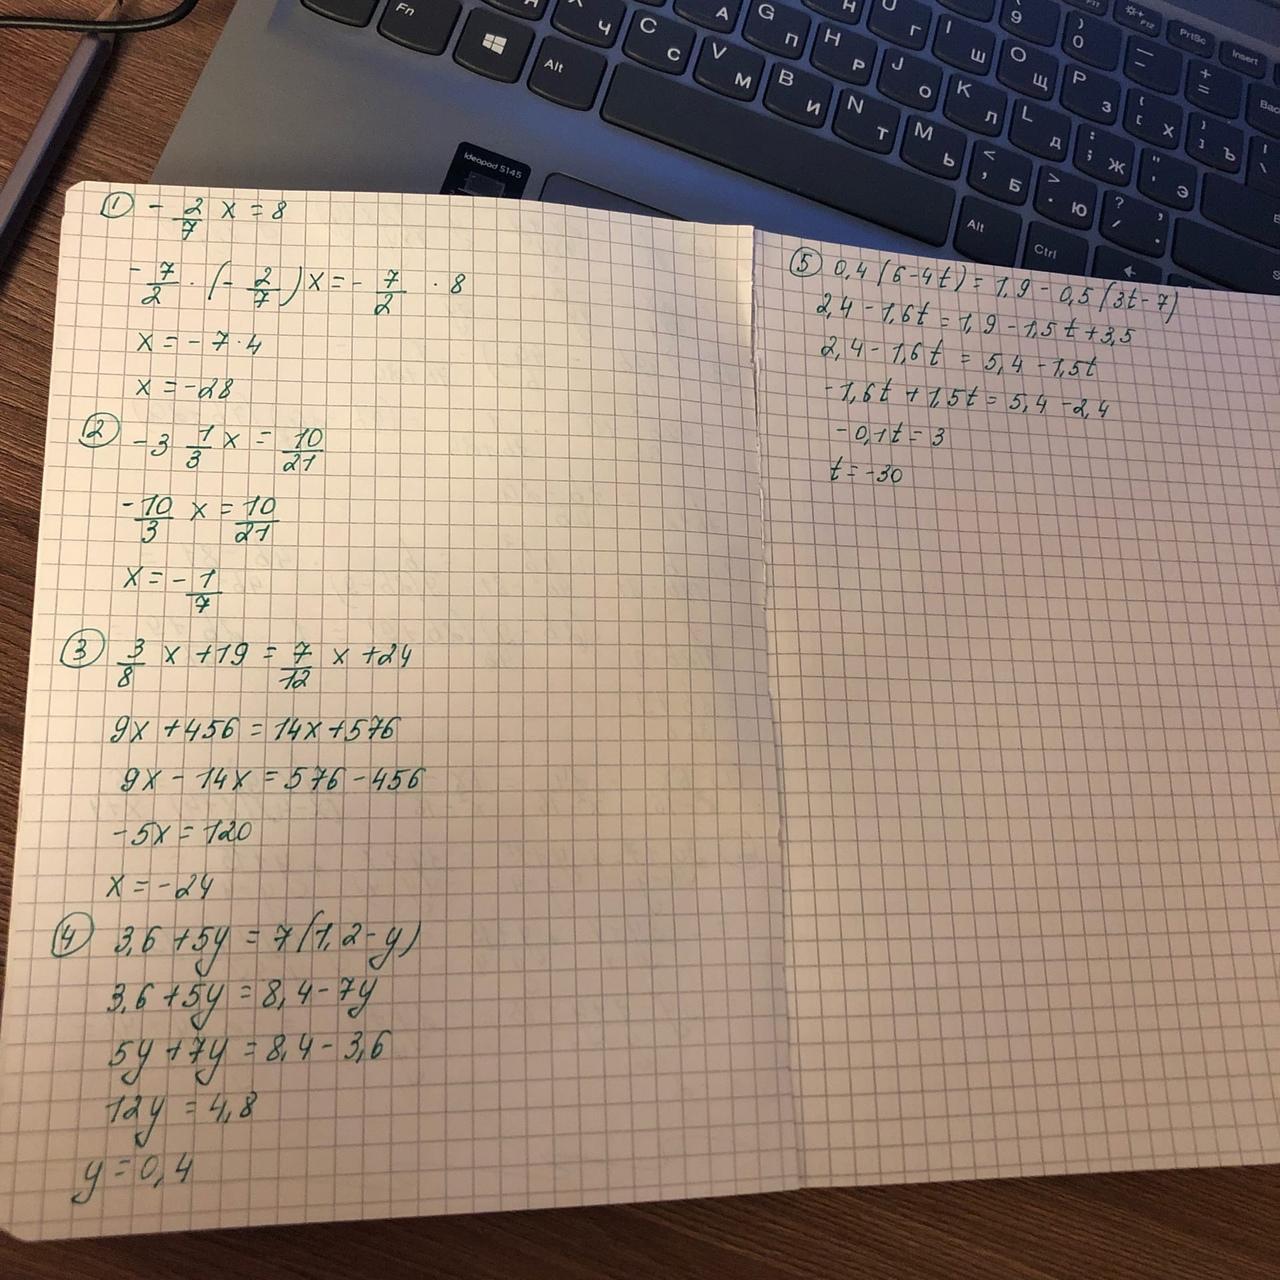 ① - 2/7 x = 8
- 7/2 · (- 2/7) x = - 7/2 · 8
x = - 7·4
x = -28
② -3 1/3 x = 10/21
-10/3 x = 10/21
x = - 1/7
③ 3/8 x +19 = 7/12 x +24
9x +456 = 14x +576
9x - 14x = 576 - 456
-5x = 120
x = -24
④ 3,6 +5y = 7(1,2 - y)
3,6 +5y = 8,4 - 7y
5y +7y = 8,4 - 3,6
12y = 4,8
y = 0,4
⑤ 0,4(6-4t) = 1,9 - 0,5(3t-7)
2,4 - 1,6t = 1,9 - 1,5t + 3,5
2,4 - 1,6t = 5,4 - 1,5t
-1,6t + 1,5t = 5,4 - 2,4
-0,1t = 3
t = -30
ideapad S145
Fn
Alt
C с
V м
B и
N т
M ь
< , Б
> . Ю
? / , .
Alt
Ctrl
←
А
G п
H р
J о
K л
L д
: ; Ж
" ' Э
I ш
O Щ
P з
{ [ х
} ] ъ
9
) 0
+ =
PrtSc
Insert
F12